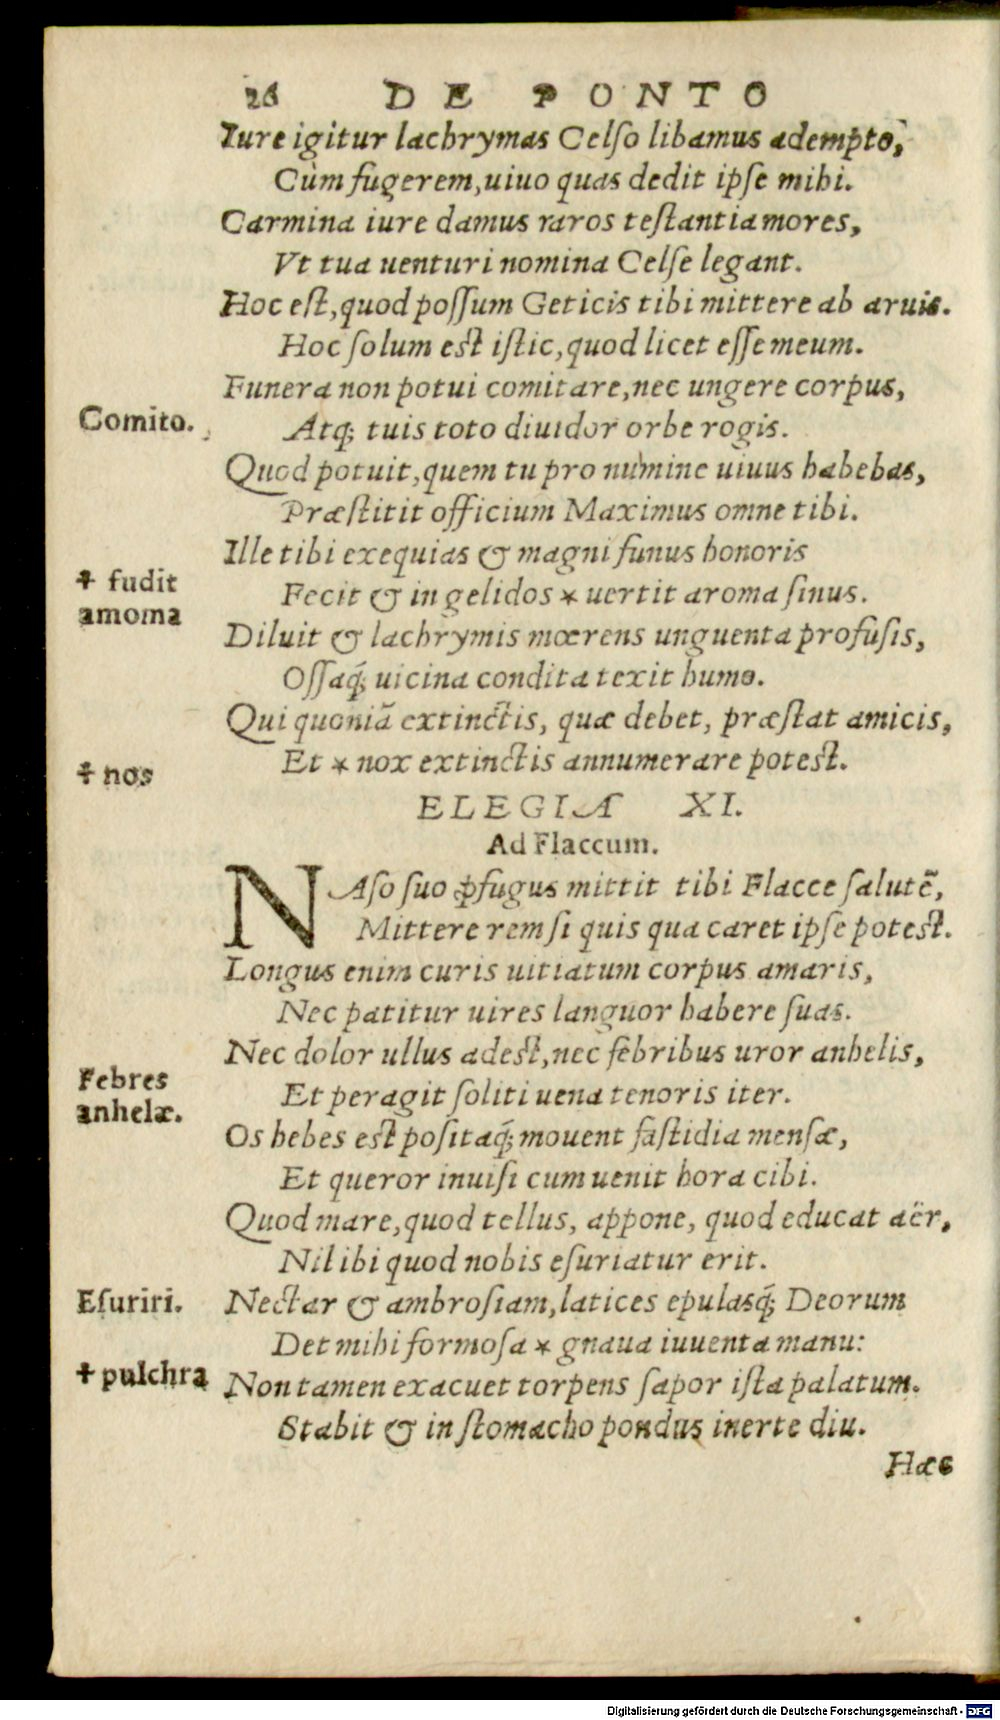 26 DE PONTO
Iure igitur lachrymas Celſo libamus adempto,
Cùm fugerem, uiuo quas dedit ipſe mihi.
Carmina iure damus raros teſtantia mores,
Vt tua uenturi nomina Celſe legant.
Hoc eſt, quod poſſum Geticis tibi mittere ab aruis.
Hoc ſolum eſt iſtic, quod licet eſſe meum.
Funera non potui comitare, nec ungere corpus,
Comito.
Atq; tuis toto diuidor orbe rogis.
Quod potuit, quem tu pro numine uiuus habebas,
Præſtitit officium Maximus omne tibi.
Ille tibi exequias & magni funus honoris
✝ fudit
amoma
Fecit & in gelidos * uertit aroma ſinus.
Diluit & lachrymis mœrens unguenta profuſis,
Oſſaq́; uicina condita texit humo.
Qui quoniā extinctis, quæ debet, præſtat amicis,
✝ nos
Et * nox extinctis annumerare poteſt.
ELEGIA XI.
Ad Flaccum.
NAſo ſuo ꝓfugus mittit tibi Flacce ſalutē,
Mittere rem ſi quis qua caret ipſe poteſt.
Longus enim curis uitiatum corpus amaris,
Nec patitur uires languor habere ſuas.
Nec dolor ullus adeſt, nec febribus uror anhelis,
Febres
anhelæ.
Et peragit ſoliti uena tenoris iter.
Os hebes eſt poſitaq́; mouent faſtidia menſæ,
Et queror inuiſi cum uenit hora cibi.
Quod mare, quod tellus, appone, quod educat aër,
Nil ibi quod nobis eſuriatur erit.
Eſuriri.
Nectar & ambroſiam, latices epulasq́; Deorum
Det mihi formoſa * gnaua iuuenta manu:
✝ pulchra
Non tamen exacuet torpens ſapor iſta palatum.
Stabit & in ſtomacho pondus inerte diu.
Hæc
Digitalisierung gefördert durch die Deutsche Forschungsgemeinschaft - DFG